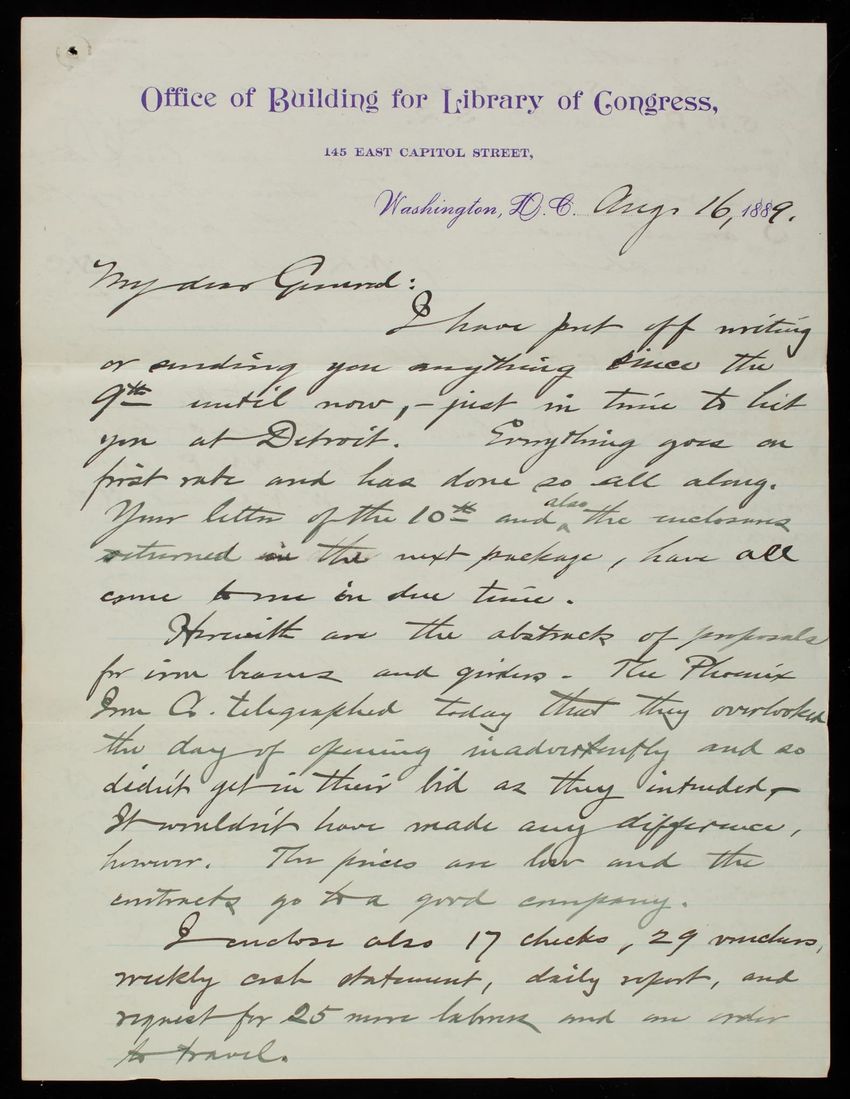 Office of Building for Library of Congress,
145 EAST CAPITOL STREET,
Washington, D.C. Aug. 16, 1889.
My dear General:
I have put off writing
or sending you anything since the
9th until now, - just in time to hit
you at Detroit. Everything goes on
first rate and has done so all along.
Your letter of the 10th and also the enclosures
returned in the next package, have all
come to me in due time.
Herewith are the abstracts of proposals
for iron beams and girders - The Phoenix
Iron Co. telegraphed today that they overlooked
the day of opening inadvertently and so
didn't get in their bid as they intended, -
It wouldn't have made any difference,
however. The prices are low and the
contracts go to a good company.
I enclose also 17 checks, 29 vouchers,
weekly cash statement, daily report, and
request for 25 more laborers and an order
to travel.